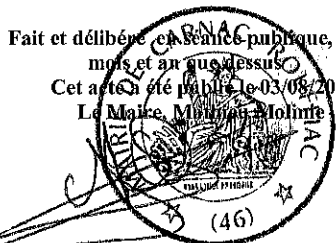 Fait et délibéré en séance publique,
mois et an que dessus
Cet acte a été publié le 03/08/20
Le Maire, Molinié
MAIRIE DE CARNAC ROUFFIAC
(46)